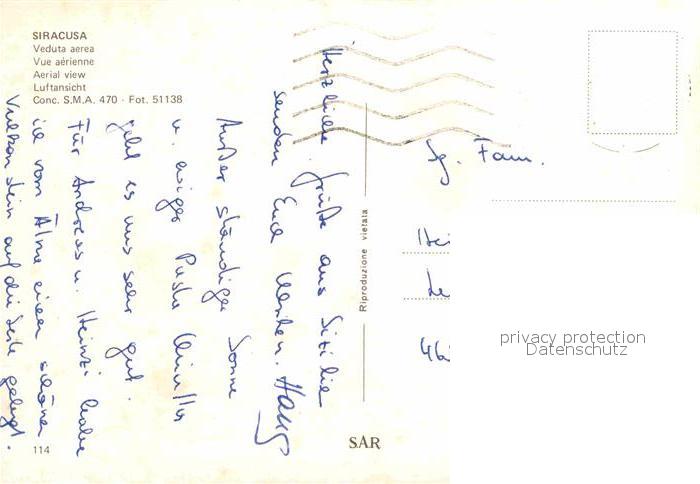 SIRACUSA
Veduta aerea
Vue aérienne
Aerial view
Luftansicht
Conc. S.M.A. 470 - Fot. 51138
Herzliche Grüße aus Sizilien
senden Euch
Hans
Außer ständiger Sonne
u. ewiger Pasta
geht es uns sehr gut.
Für Andreas u. Heinzi habe
ich vom Ätna einen schönen
Vulkanstein auf die Seite gelegt.
Riproduzione vietata
Fam.
privacy protection
Datenschutz
114
SAR